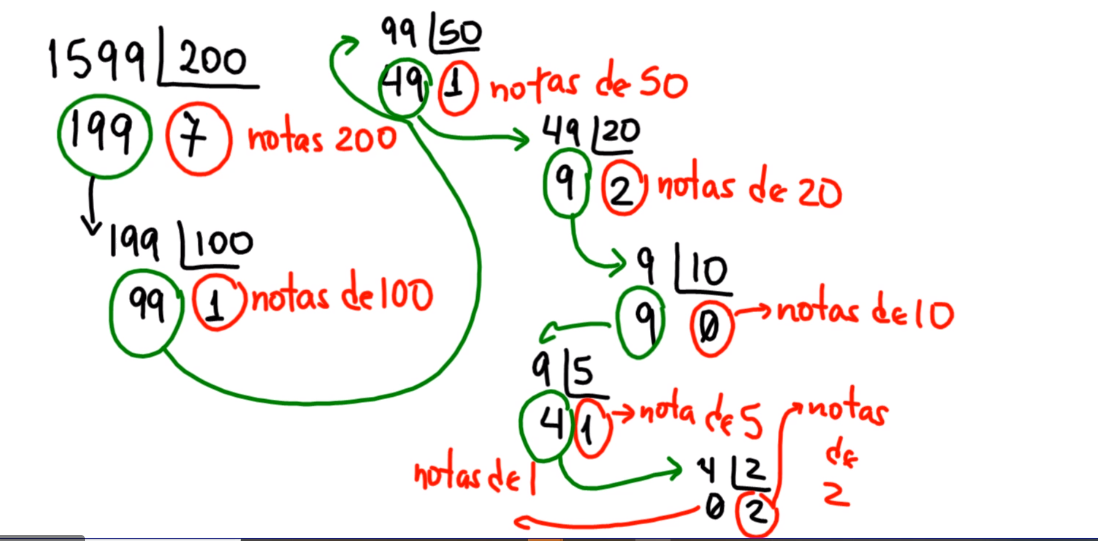 1599 200
199 7 notas 200
199 100
99 1 notas de 100
99 50
49 1 notas de 50
49 20
9 2 notas de 20
9 10
9 0 notas de 10
9 5
4 1 nota de 5
4 2
0 2 notas
de
2
notas de 1